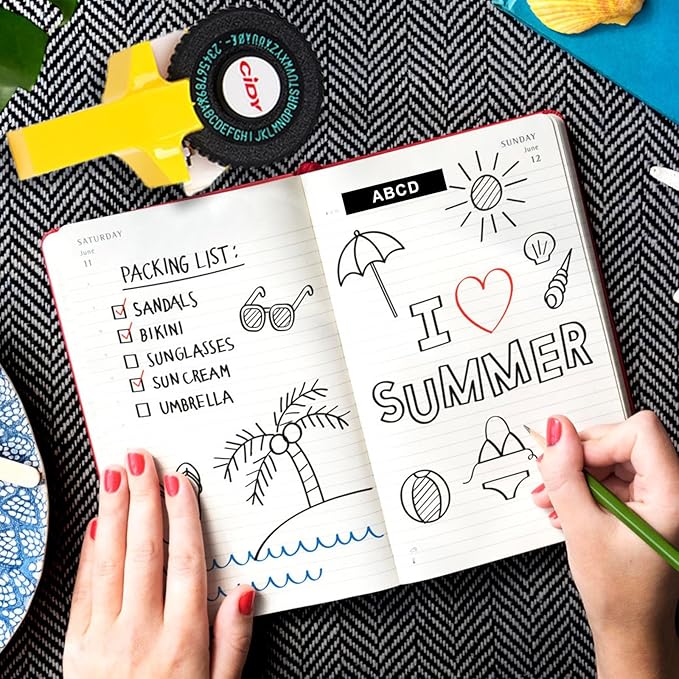 CIDY
ABCDEFGHIJKLMNOPQRSTUVWXYZ
SATURDAY
June
11
PACKING LIST:
SANDALS
BIKINI
SUNGLASSES
SUN CREAM
UMBRELLA
SUNDAY
June
12
ABCD
I
SUMMER